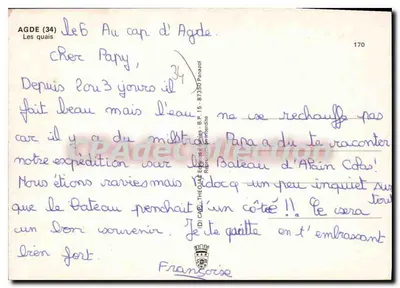 AGDE (34)
Les quais
170
le 6 Au cap d'Agde.
Cher Papy,
34
Depuis 2 ou 3 jours il
fait beau mais l'eau ne se rechauffe pas
car il y a du mistral Papa a du te raconter
notre expédition sur le Bateau d'Alain Colas!
Nous étions ravies mais un peu inquiet surtout
que le bateau penchait d'un côté !! Ce sera
un bon souvenir. Je te quitte en t'embrassant
bien fort.
Françoise